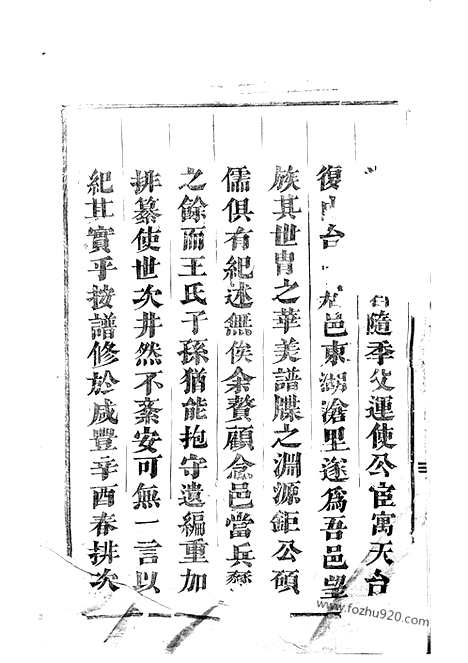 隨季父運使公宦寓天台
復台邑東湖滄里遂爲吾邑望
族其世胄之華美譜牒之淵源鉅公碩
儒俱有紀述無俟余贅顧念邑當兵燹
之餘而王氏子孫猶能抱守遺編重加
排纂使世次井然不紊安可無一言以
紀其實乎按譜修於咸豐辛酉春排次
www.fozhu920.com